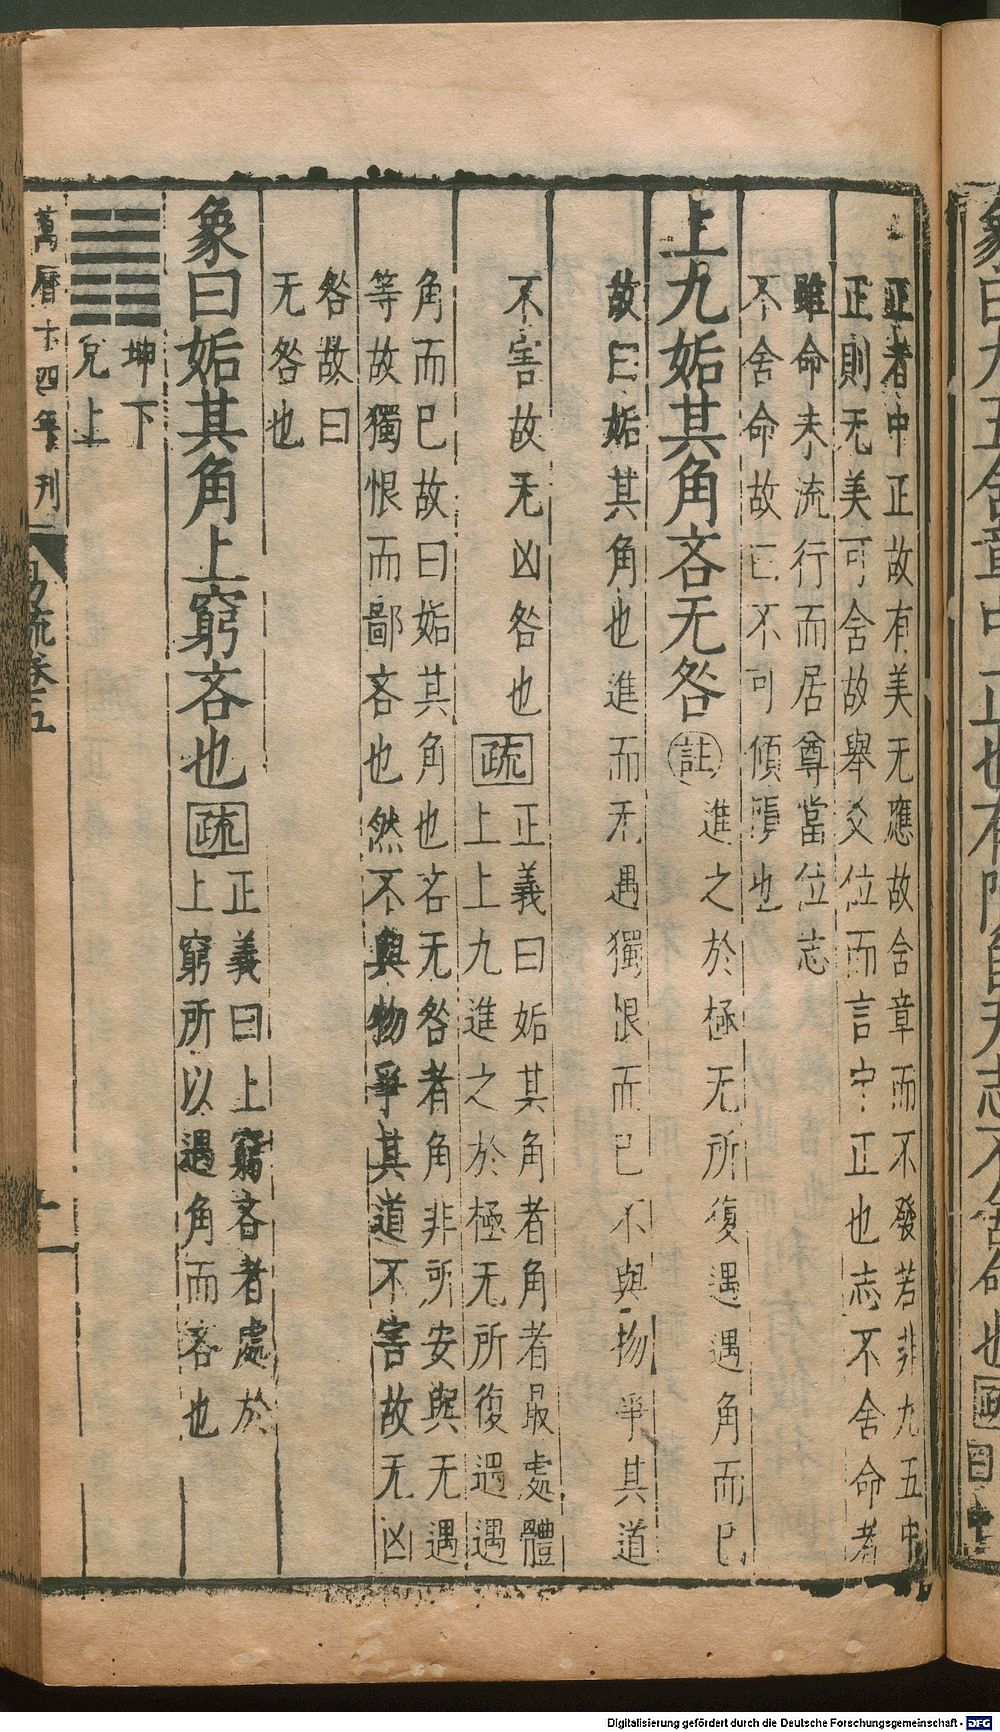 象曰九五含章中正也有隕自天志不舍命也疏
正者中正故有美无應故舍章而不發若非九五中
正則无美可舍故舉爻位而言中正也志不舍命者
雖命未流行而居尊當位志
不舍命故曰不可傾隕也
上九姤其角吝无咎註進之於極无所復遇遇角而已
故曰姤其角也進而无遇獨恨而已不與物爭其道
不害故无凶咎也疏正義曰姤其角者角者最處體
上上九進之於極无所復遇遇
角而已故曰姤其角也吝无咎者角非所安與无遇
等故獨恨而鄙吝也然不與物爭其道不害故无凶
咎故曰
无咎也
象曰姤其角上窮吝也疏正義曰上窮吝者處於
上窮所以遇角而吝也
坤下
兌上
萬曆十四年刊 易疏卷五
Digitalisierung gefördert durch die Deutsche Forschungsgemeinschaft - DFG